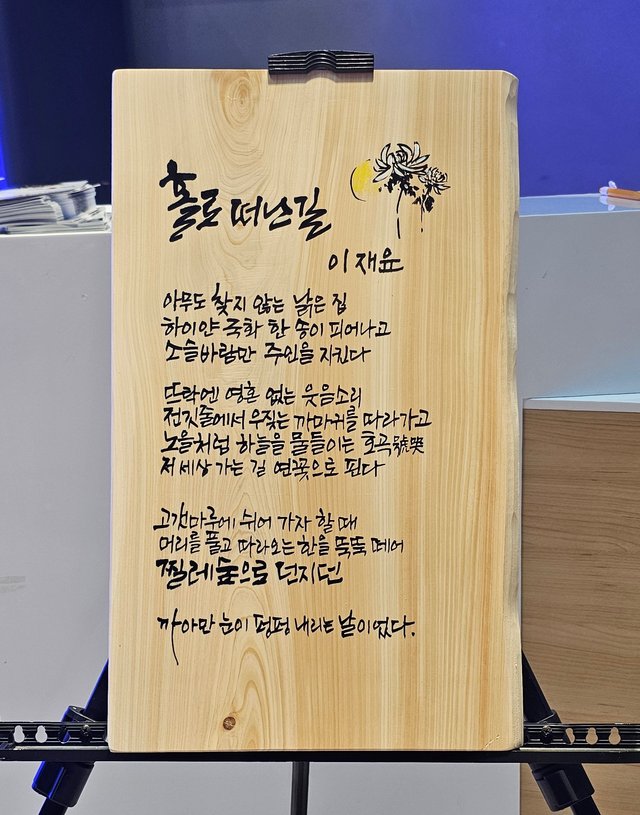 홀로 떠난 길
이재윤
아무도 찾지 않는 낡은 집
하이얀 국화 한 송이 피어나고
소슬바람만 주인을 지킨다
뜨락엔 영혼 없는 웃음소리
전깃줄에서 우짖는 까마귀를 따라가고
노을처럼 하늘을 물들이는 호곡號哭
저 세상 가는 길 연꽃으로 핀다
고갯마루에 쉬어 가자 할 때
머리를 풀고 따라오는 한을 뚝뚝 떼어
찔레숲으로 던지던
까아만 눈이 펑펑 내리는 날이었다.